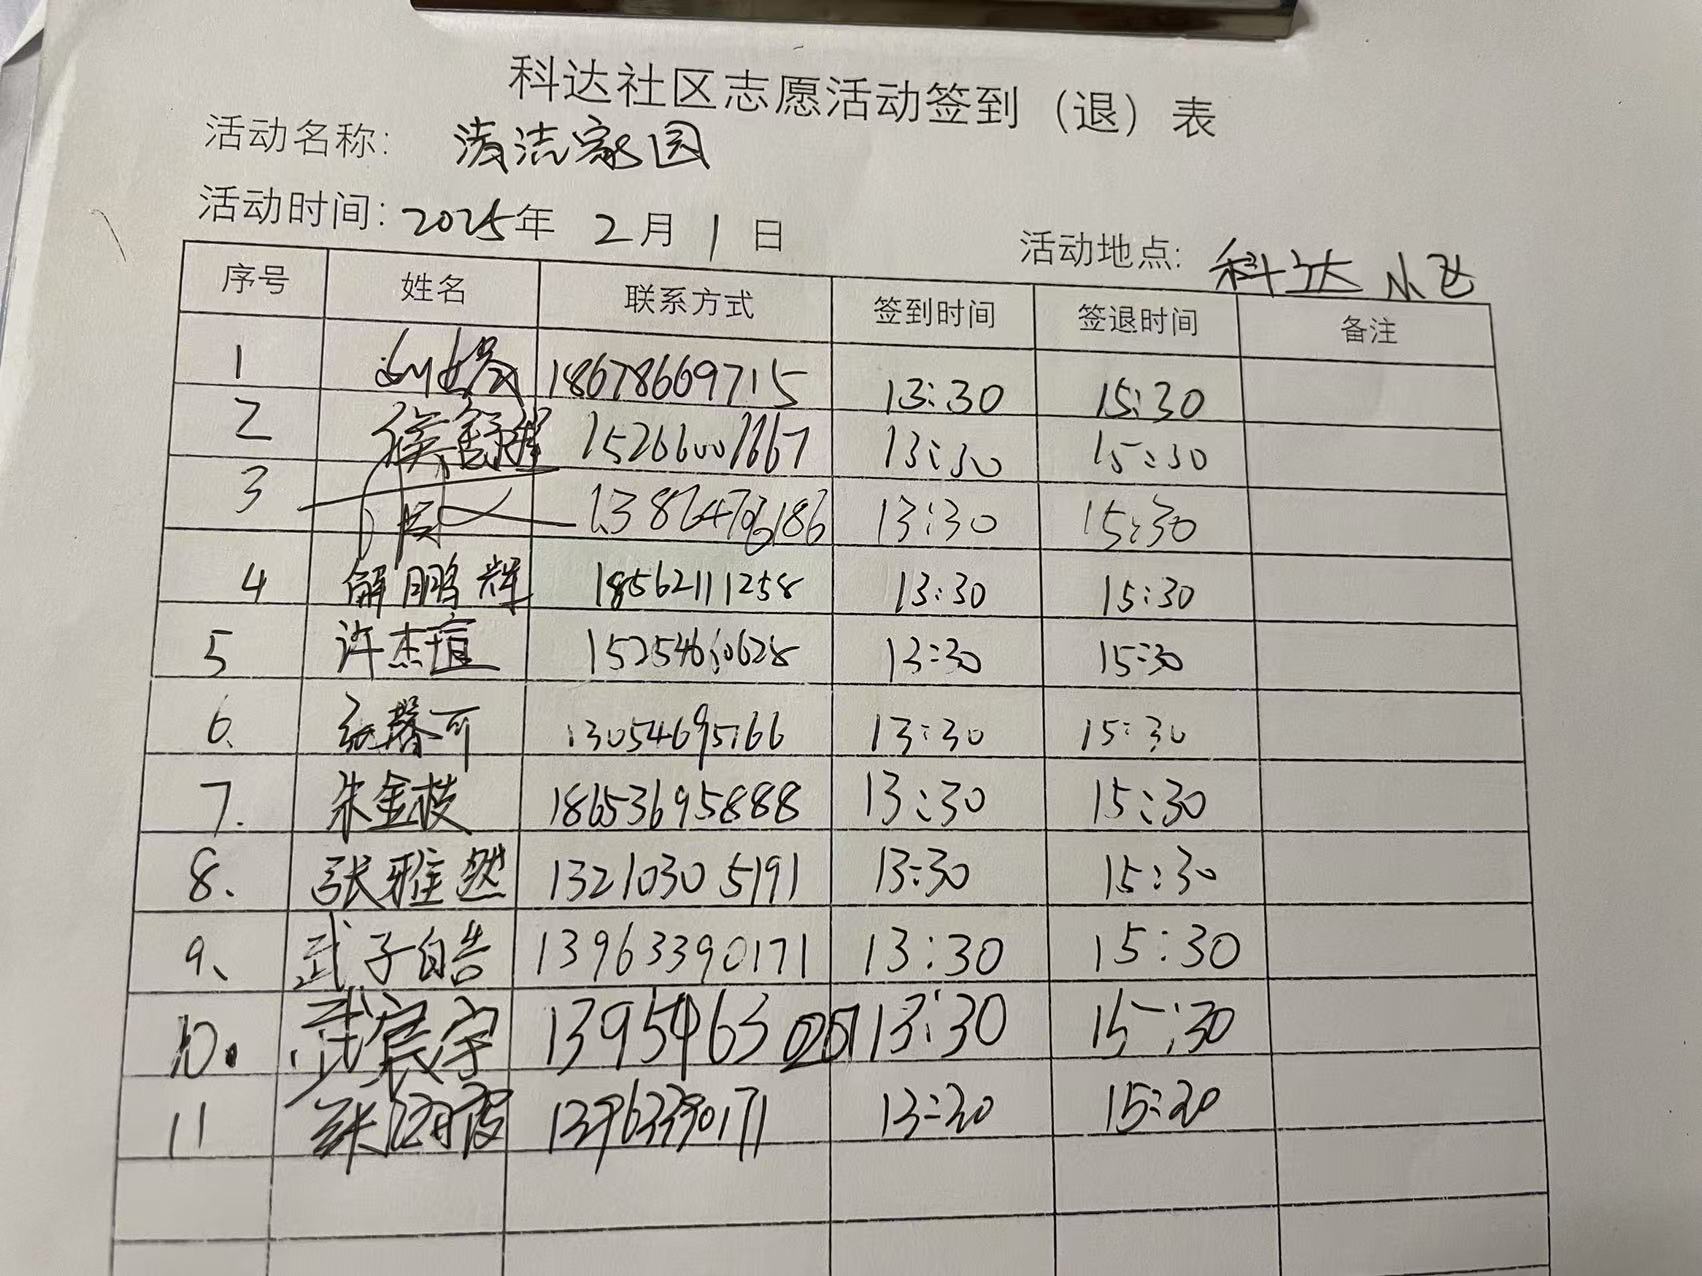 科达社区志愿活动签到（退）表
活动名称： 清洁家园
活动时间：2025年 2月 1日 活动地点：科达小区
序号 姓名 联系方式 签到时间 签退时间 备注
1 18678669715 13:30 15:30
2 13:30 15:30
3 13:30 15:30
4 解鹏辉 18562111258 13:30 15:30
5 许杰 13:30 15:30
6. 张馨可 13054695166 13:30 15:30
7. 朱金枝 18653695888 13:30 15:30
8、 张雅然 13210305191 13:30 15:30
9、 武子皓 13963390171 13:30 15:30
10. 武宸宇 13:30 15:30
11 13963390171 13:30 15:30